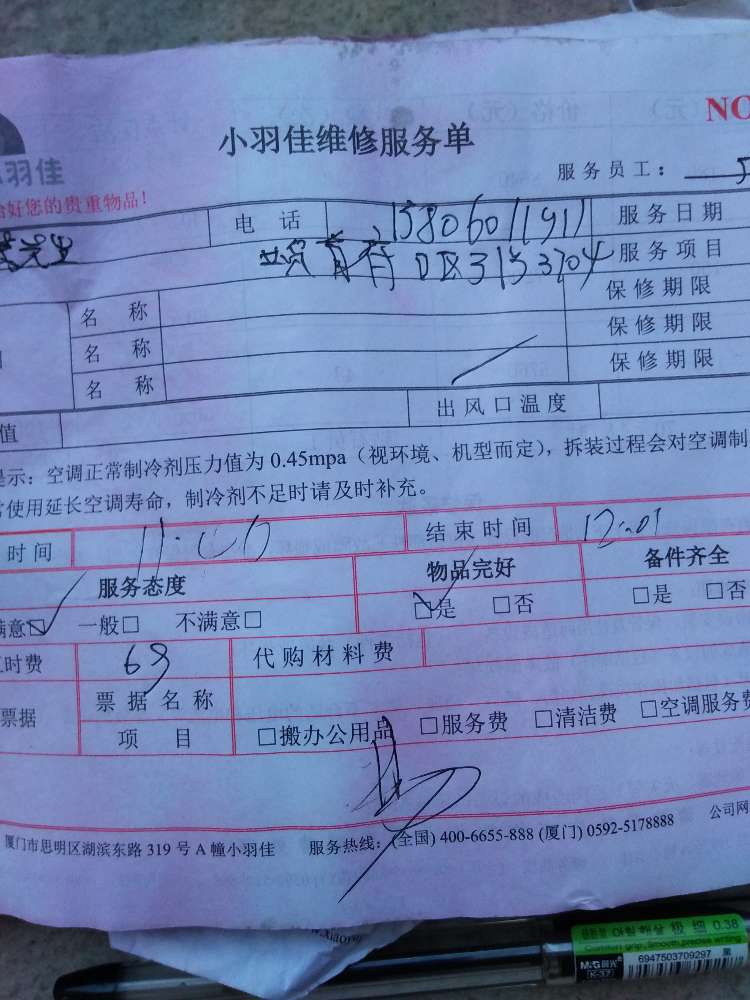 NO
小羽佳维修服务单
羽佳
服务员工：
好您的贵重物品！
先生 电话 13806011911 服务日期
服务项目
名称 保修期限
名称 保修期限
名称 保修期限
值 出风口温度
示：空调正常制冷剂压力值为 0.45mpa（视环境、机型而定），拆装过程会对空调制
使用延长空调寿命，制冷剂不足时请及时补充。
时间 11:00 结束时间 12:01
服务态度 物品完好 备件齐全
满意☑ 一般□ 不满意□ ☑是 □否 □是 □否
时费 69 代购材料费
票据 票据名称
项目 □搬办公用品 □服务费 □清洁费 □空调服务费
厦门市思明区湖滨东路 319 号 A 幢小羽佳 服务热线：(全国) 400-6655-888 (厦门) 0592-5178888 公司网
0.38
Comfort grip, Smooth precise writing
M&G 晨光
K-37
6947503709297 黑